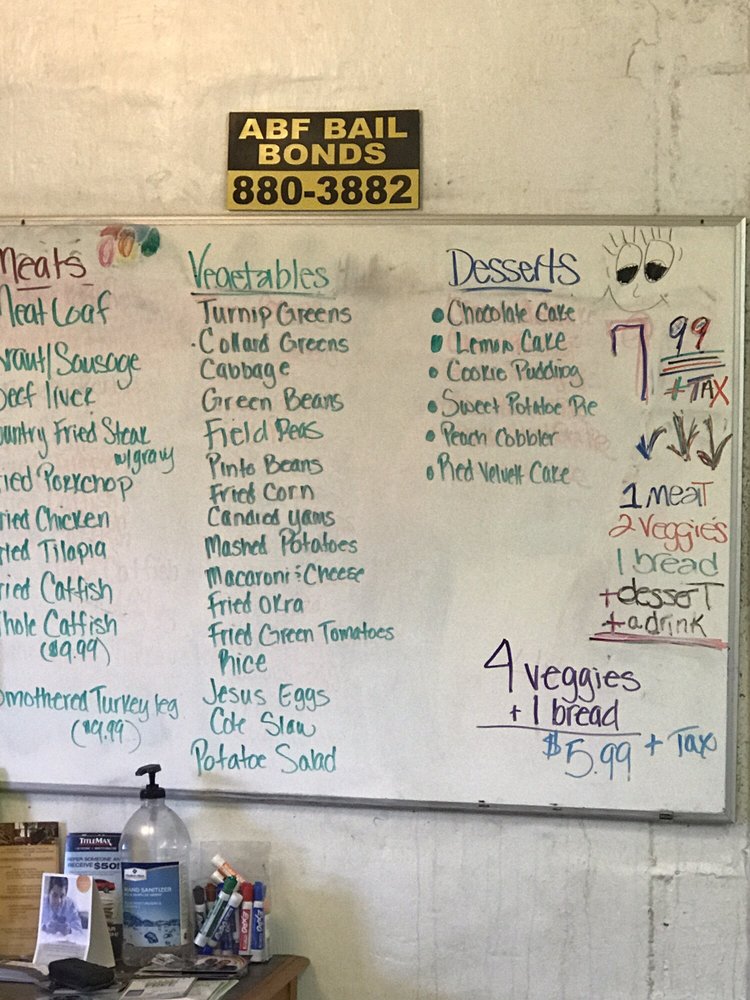 ABF BAIL
BONDS
880-3882
Meats
Meat Loaf
Kraut/Sausage
Beef liver
Country Fried Steak
w/gravy
Fried Porkchop
Fried Chicken
Fried Tilapia
Fried Catfish
Whole Catfish
($9.99)
Smothered Turkey leg
($9.99)
Vegetables
Turnip Greens
Collard Greens
Cabbage
Green Beans
Field Peas
Pinto Beans
Fried Corn
Candied yams
Mashed Potatoes
Macaroni & Cheese
Fried Okra
Fried Green Tomatoes
Rice
Jesus Eggs
Cole Slaw
Potatoe Salad
Desserts
• Chocolate Cake
• Lemon Cake
• Cookie Pudding
• Sweet Potatoe Pie
• Peach Cobbler
• Red Velvett Cake
7 99
+ TAX
1 meaT
2 Veggies
1 bread
+ desserT
+ a drink
4 veggies
+ 1 bread
$5.99 + Tax
TITLEMAX
REFER SOMEONE AND
RECEIVE $50!
HAND SANITIZER
EXPO